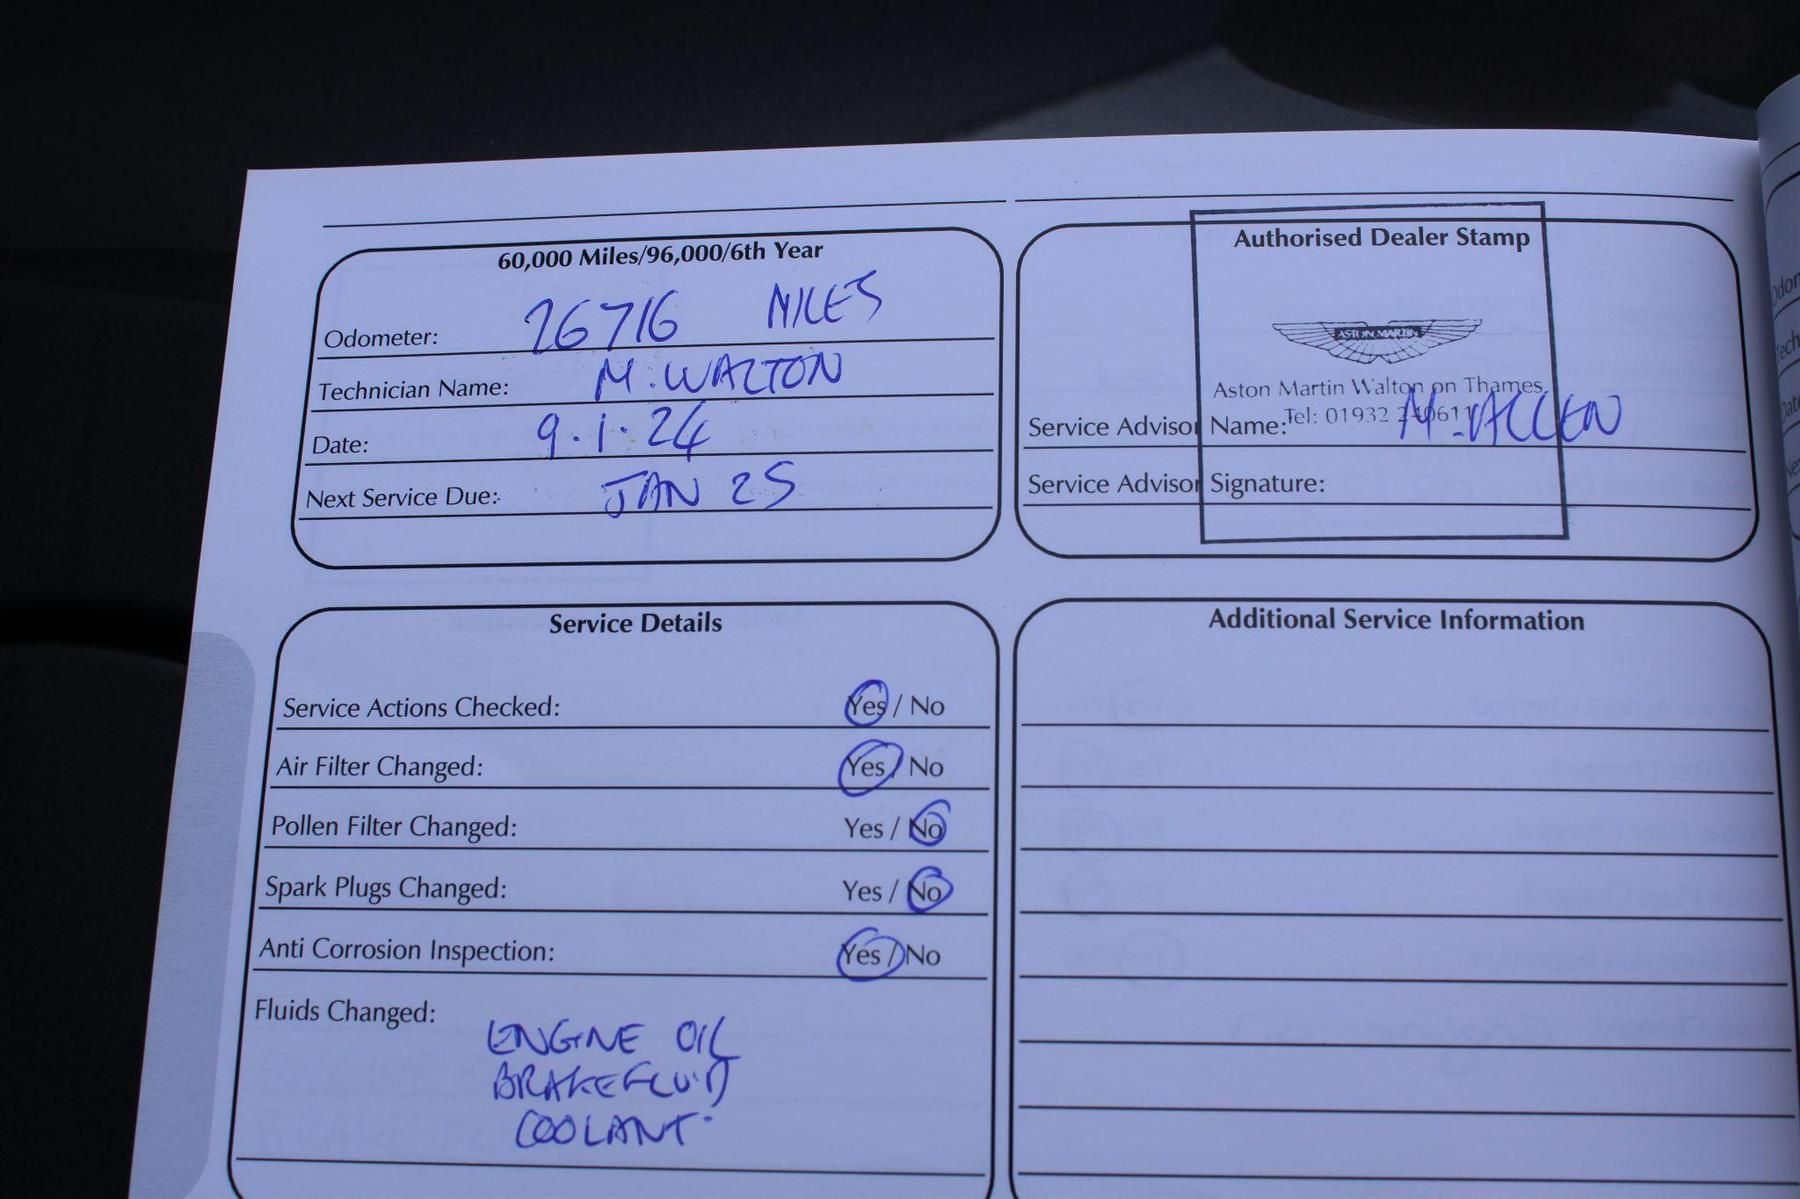 60,000 Miles/96,000/6th Year
Odometer: 26716 MILES
Technician Name: M. WALTON
Date: 9.1.24
Next Service Due: JAN 25
Authorised Dealer Stamp
ASTON MARTIN
Aston Martin Walton on Thames
Tel: 01932 240611
Service Advisor Name: M. ALLEN
Service Advisor Signature:
Service Details
Service Actions Checked: Yes / No
Air Filter Changed: Yes / No
Pollen Filter Changed: Yes / No
Spark Plugs Changed: Yes / No
Anti Corrosion Inspection: Yes / No
Fluids Changed:
ENGINE OIL
BRAKE FLUID
COOLANT
Additional Service Information